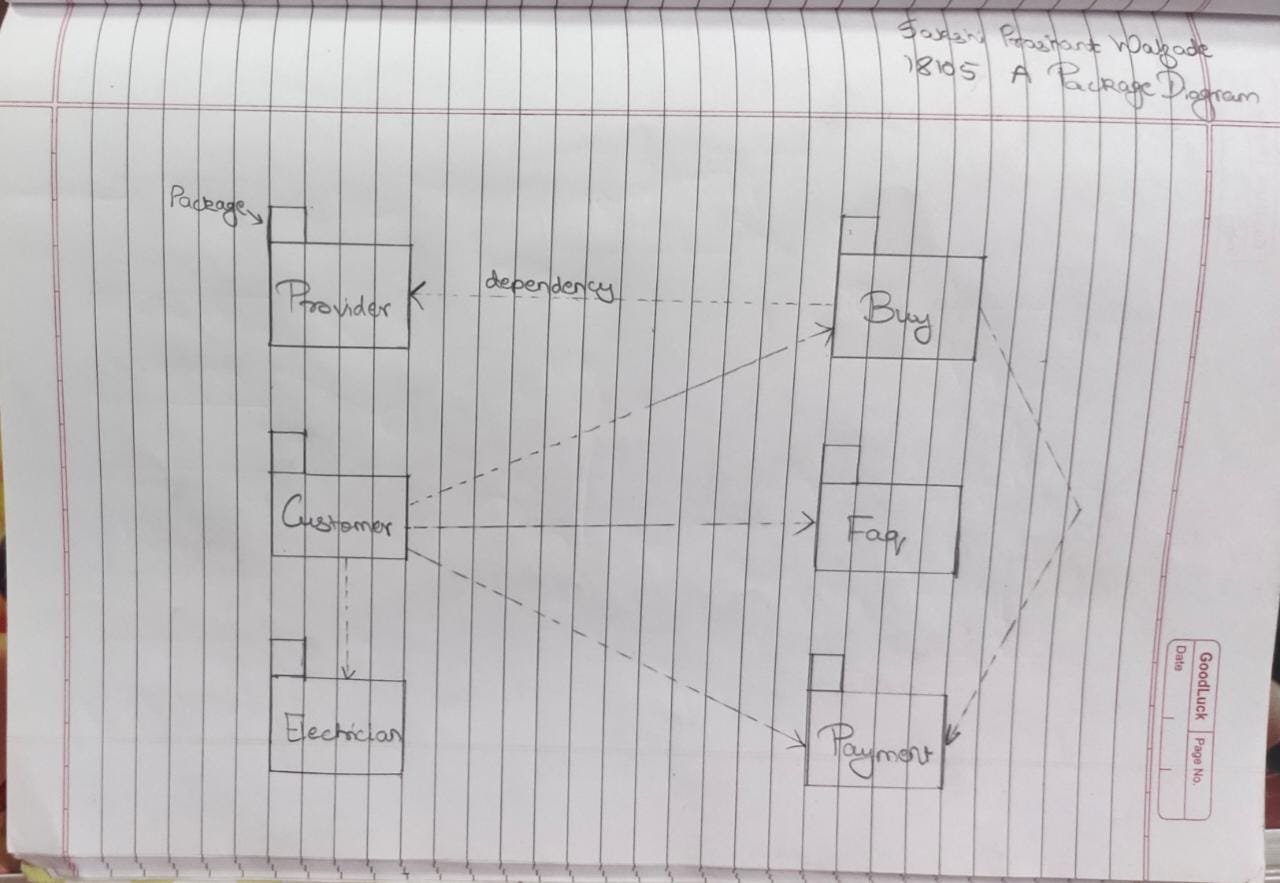 Prashant Walzade
18105 A Package Diagram
Package
Provider
dependency
Buy
Customer
Faq
Electrician
Payment
GoodLuck
Page No.
Date